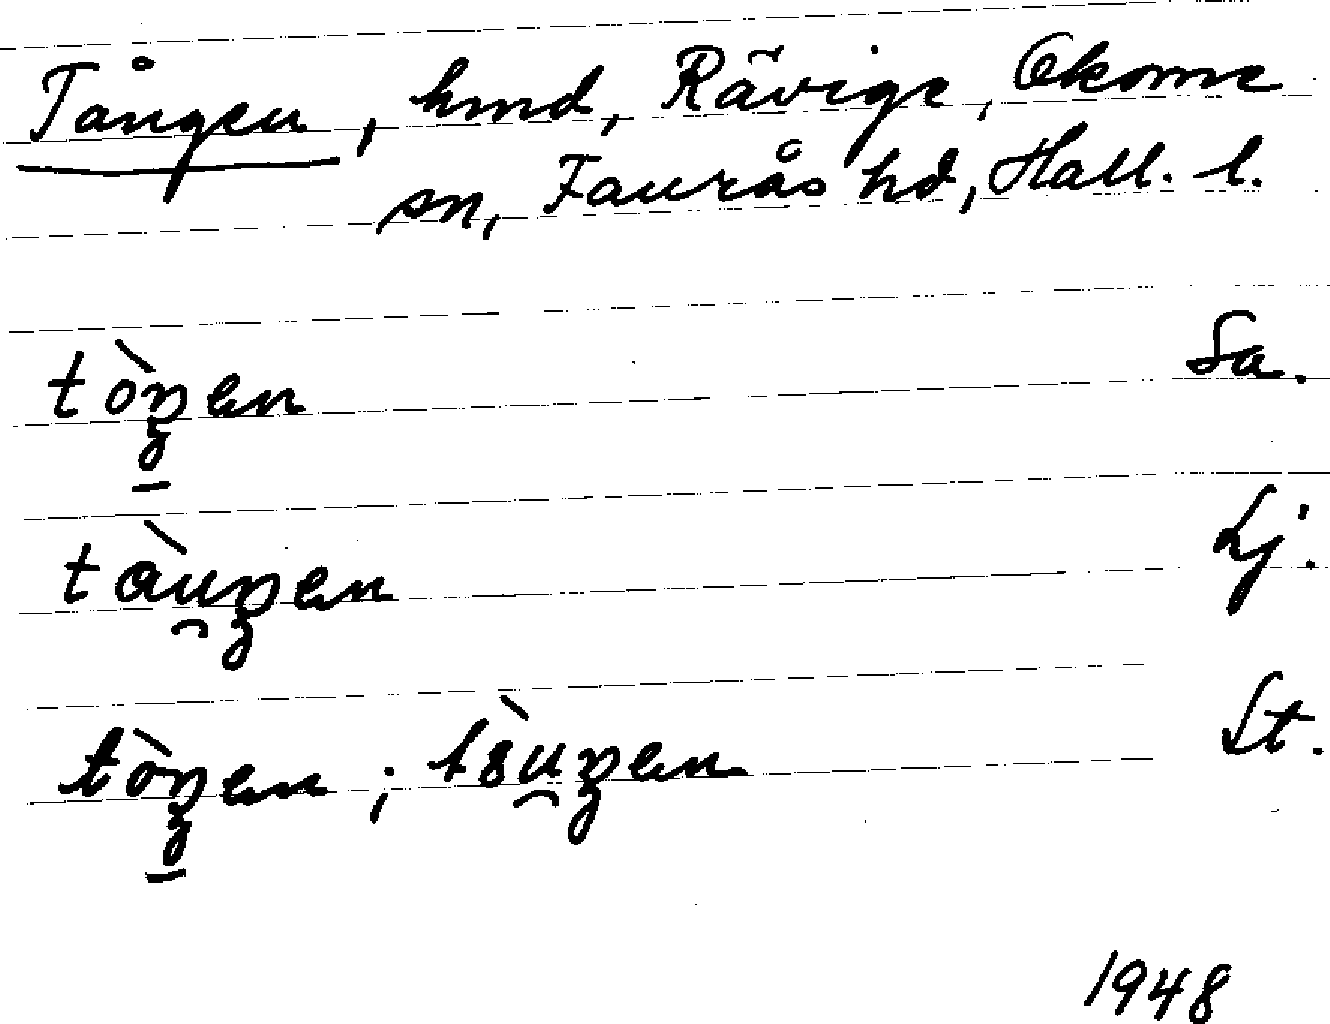 Tången, hmd, Rävige, Okome
sn, Faurås hd, Hall. l.
tòŋen Sa.
tàu̯ŋen Lj.
tòŋen ; tàu̯ŋen St.
1948